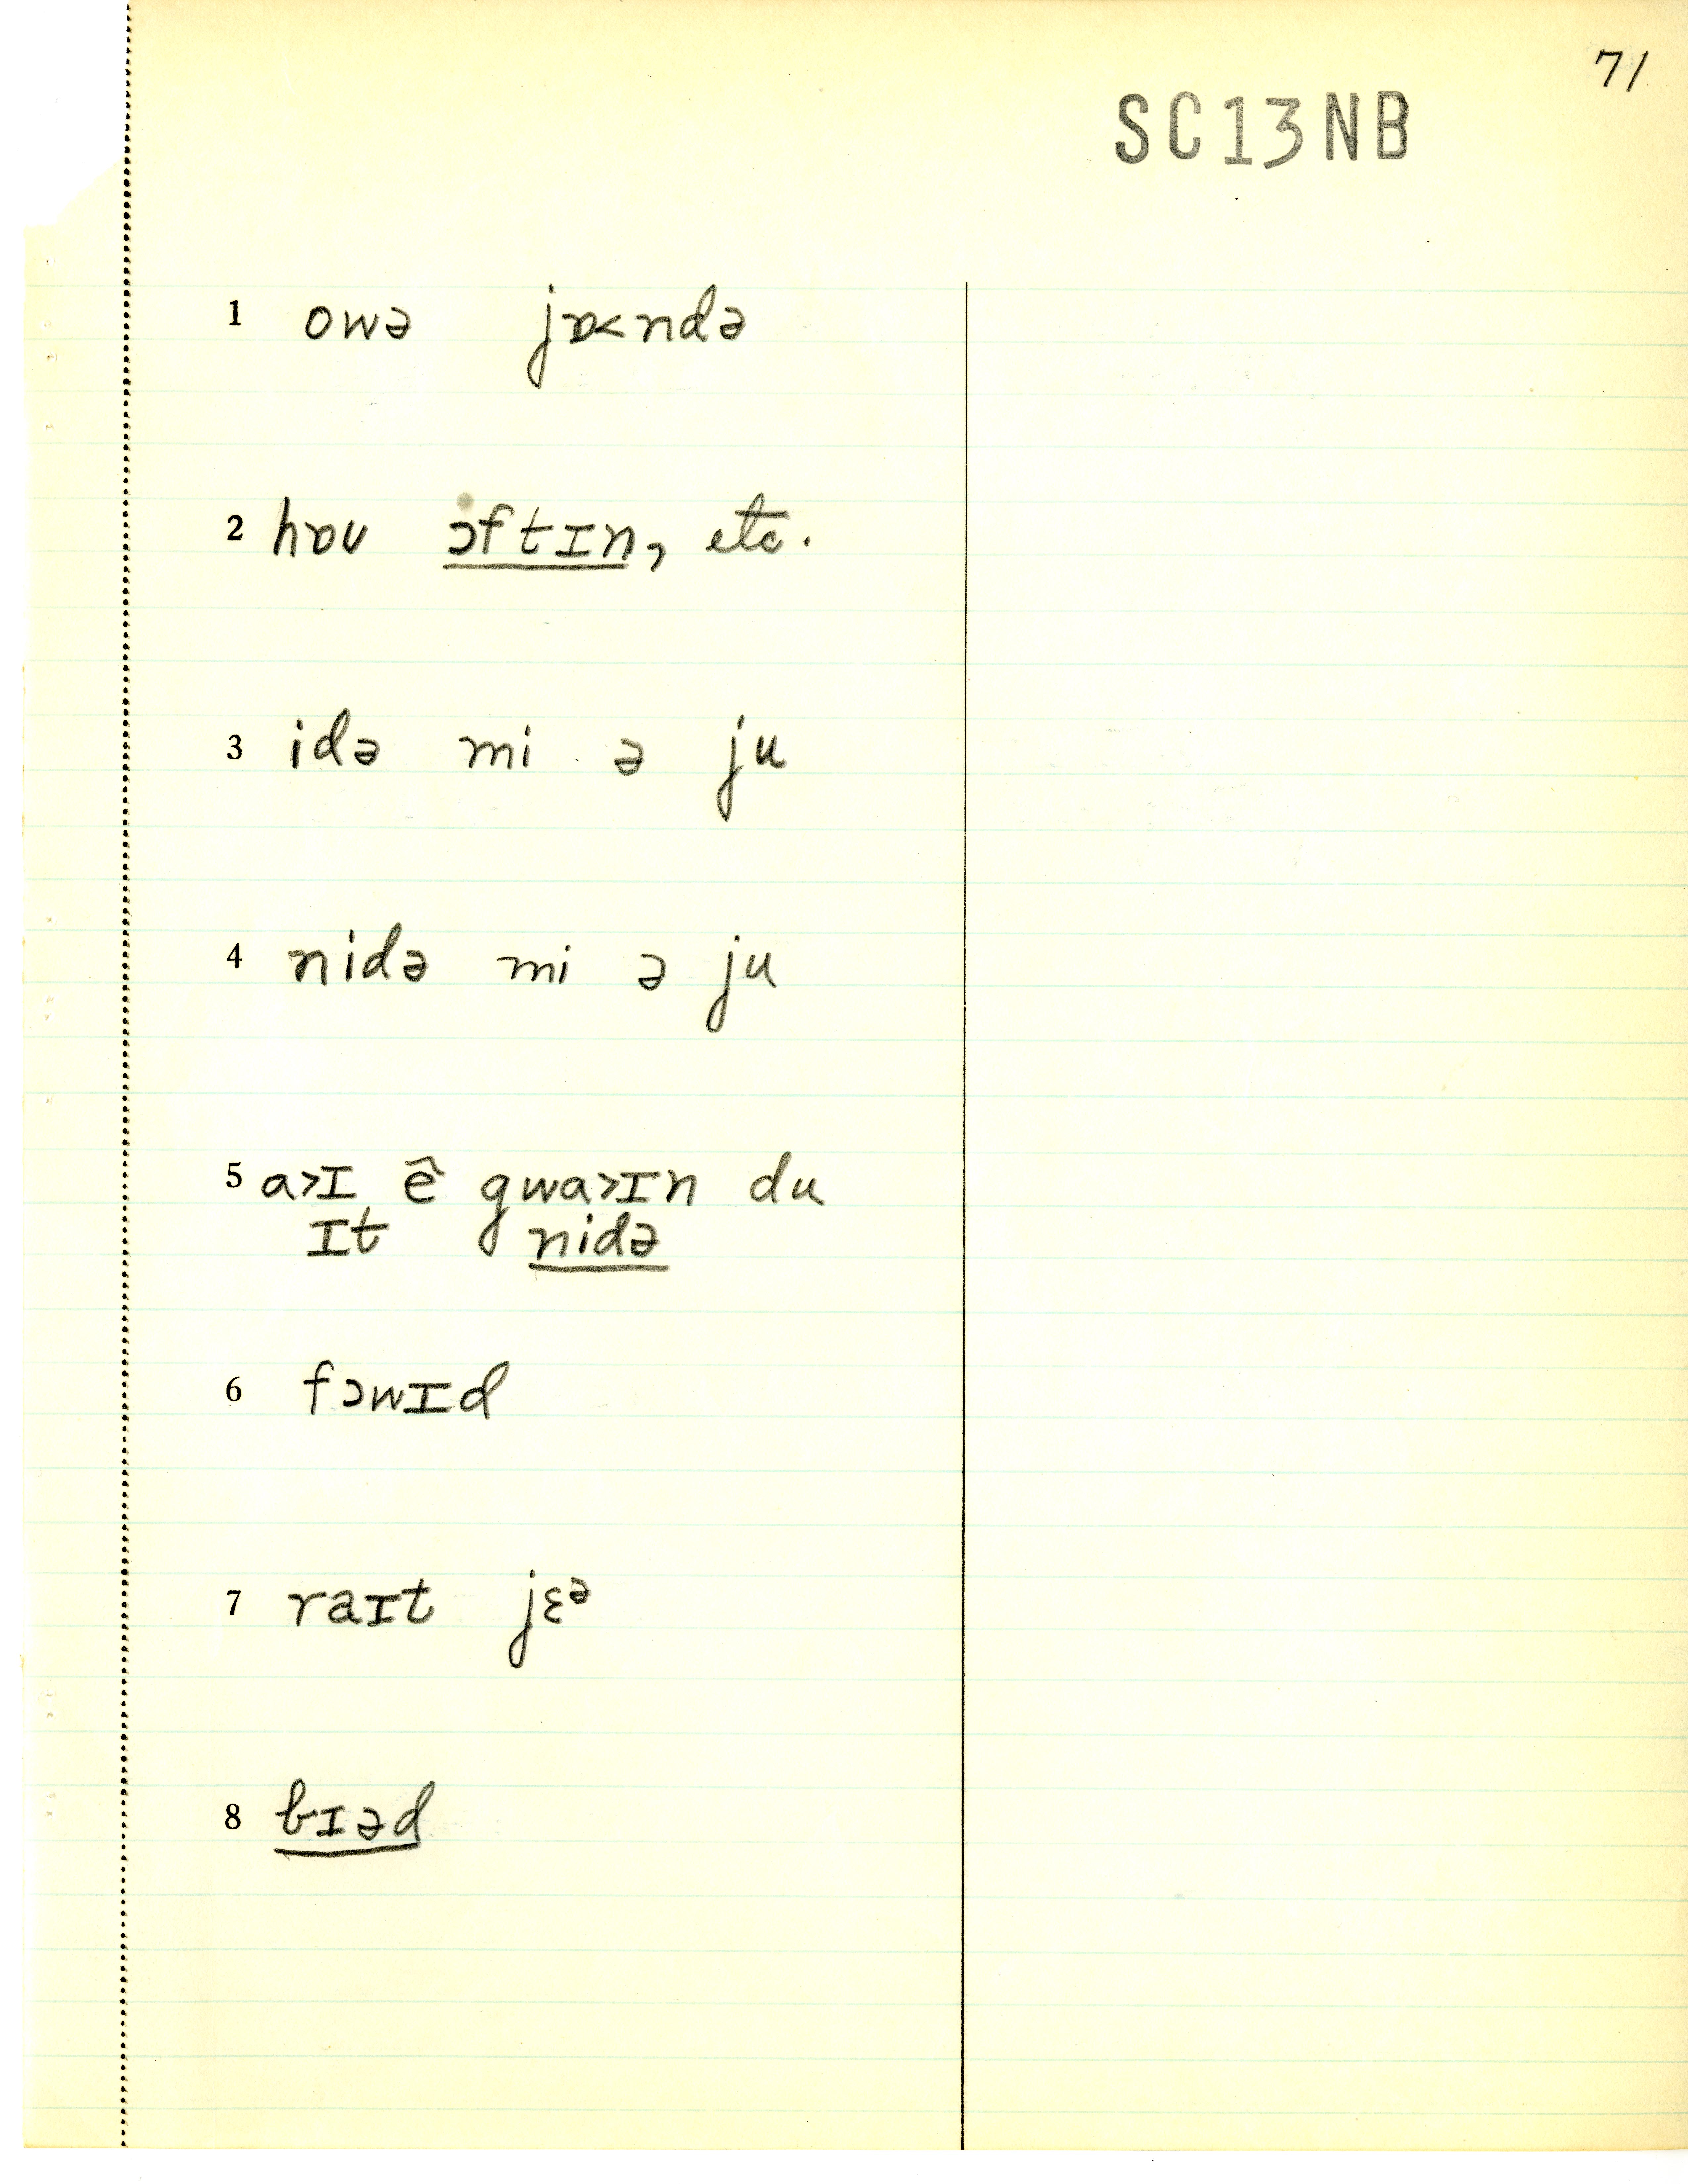 71
SC13NB
1 owə jɒ<ndə
2 hɒʊ ɔftɪn, etc.
3 idə mi ə ju
4 nidə mi ə ju
5 a>ɪ ẽ̂ gwa>ɪn du
ɪt nidə
6 fɔwɪd
7 raɪt jɛᵊ
8 bɪəd